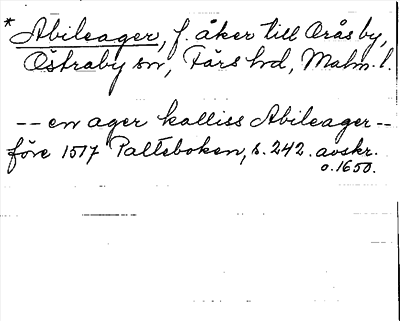 * Abileager, f. åker till Orås by,
Östraby sn, Färs hd, Malm. l.
-- en ager kalliss Abileager --
före 1517 Palteboken, s. 242. avskr.
o. 1650.